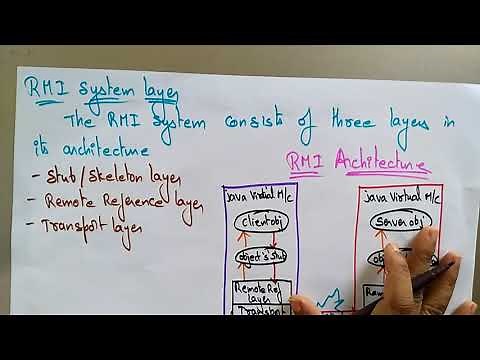 RMI System layer
The RMI System consists of three layers in
its architecture
- Stub/Skeleton layer
- Remote Reference layer
- Transport layer
RMI Architecture
java Virtual M/c
client obj
object's stub
Remote Ref
layer
Transport
java Virtual M/c
server obj